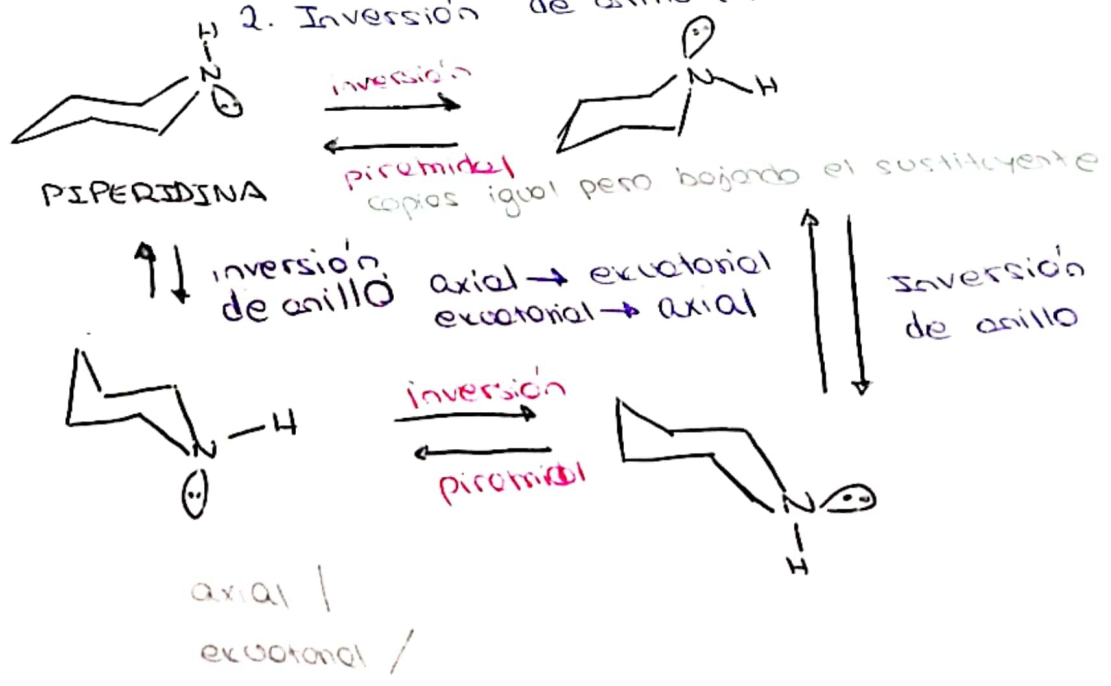 2. Inversión de anillo
H
N
inversión
N H
piramidal
PIPERIDINA
copias igual pero bajando el sustituyente
inversión
de anillo
axial → ecuatorial
ecuatorial → axial
Inversión
de anillo
inversión
N H
piramidal
N
H
axial |
ecuatorial /